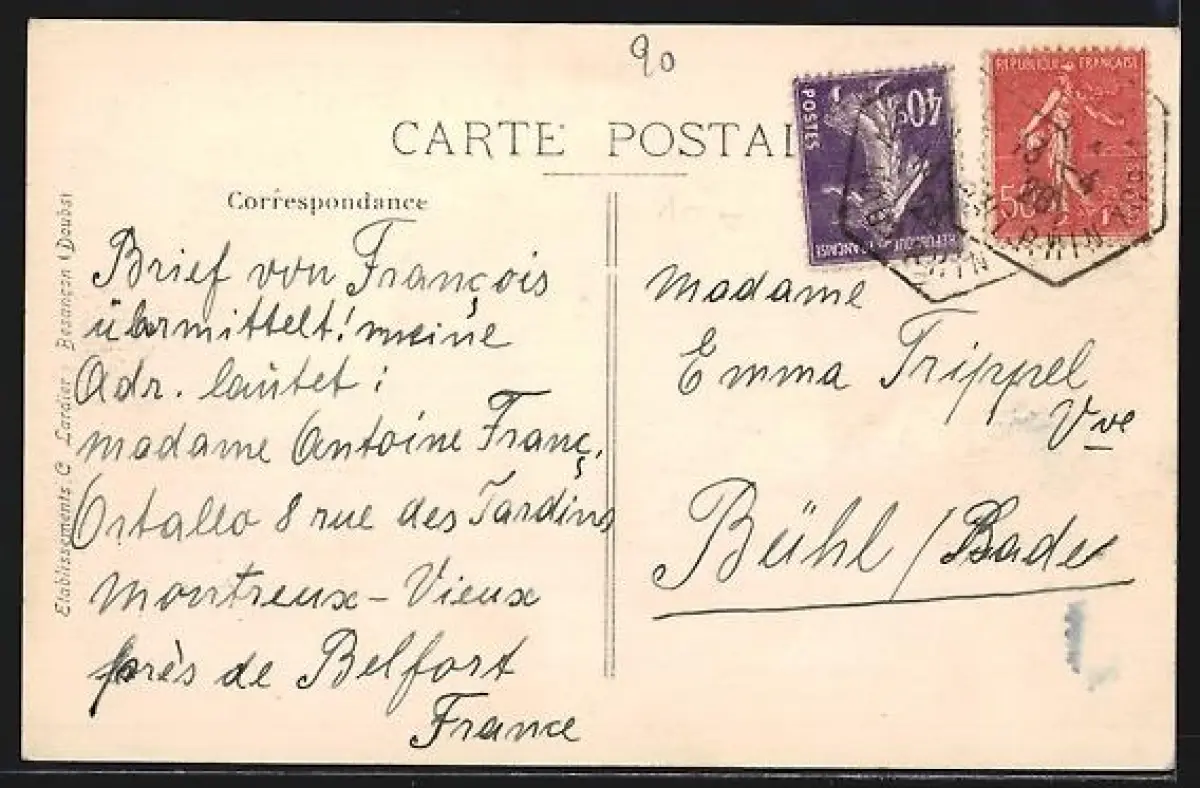 90
CARTE POSTAL
Correspondance
Brief von François
übermittelt! meine
Adr. lautet:
Madame Antoine Franç.
Ortallo 8 rue des Jardins
Montreux-Vieux
près de Belfort
France
Etablissements C. Lardier - Besançon (Doubs)
40c
POSTES
REPUBLIQUE FRANÇAISE
REPUBLIQUE FRANÇAISE
50
POSTES
Madame
Emma Trippel
Vve
Bühl / Bade